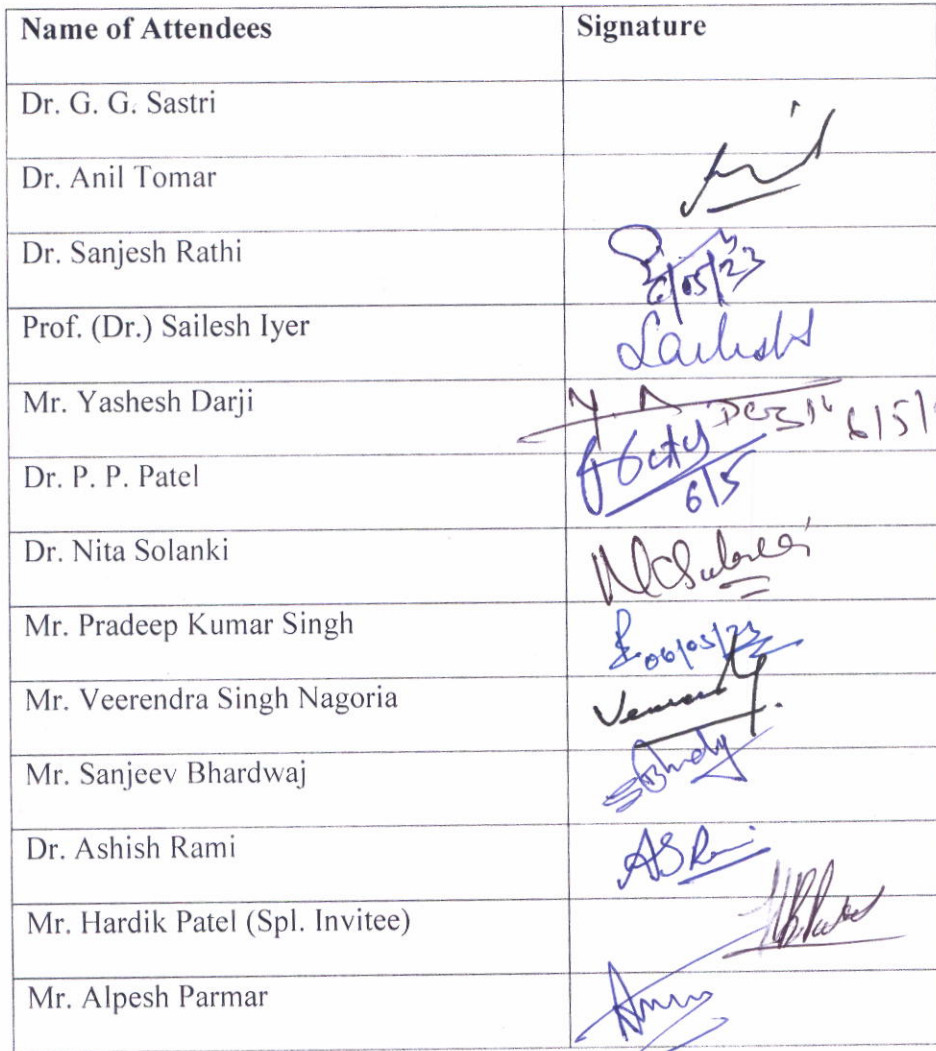 Name of Attendees Signature
Dr. G. G. Sastri
Dr. Anil Tomar
Dr. Sanjesh Rathi 6/05/23
Prof. (Dr.) Sailesh Iyer
Mr. Yashesh Darji 6/5/
Dr. P. P. Patel 6/5
Dr. Nita Solanki
Mr. Pradeep Kumar Singh 06/05/23
Mr. Veerendra Singh Nagoria
Mr. Sanjeev Bhardwaj
Dr. Ashish Rami
Mr. Hardik Patel (Spl. Invitee)
Mr. Alpesh Parmar